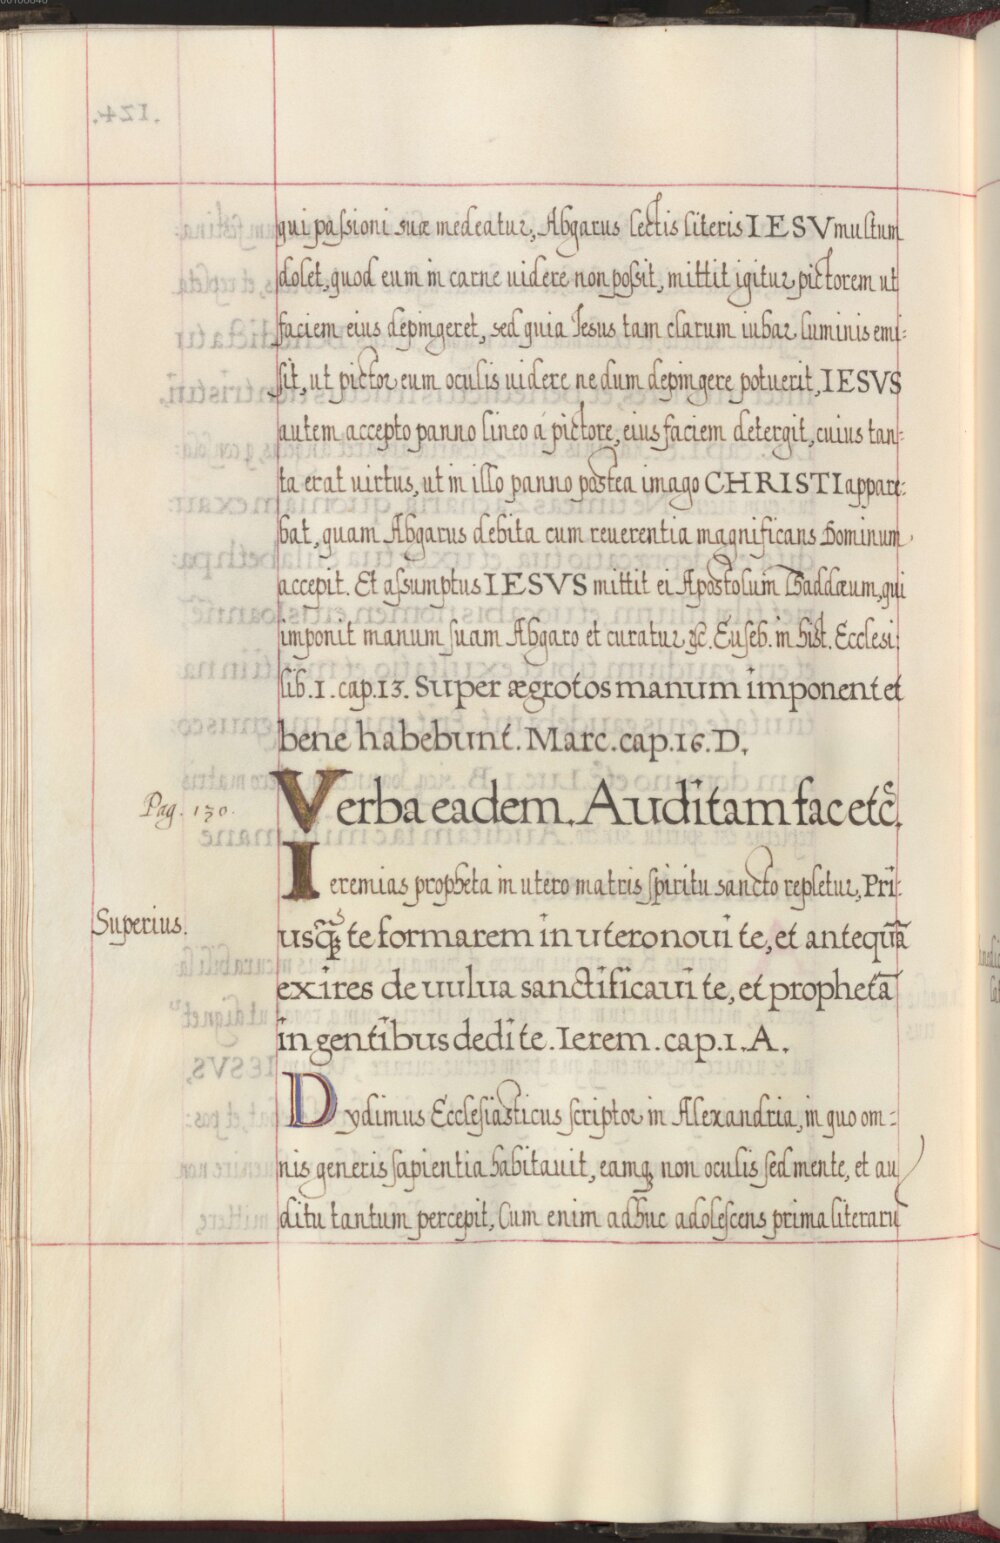 qui passioni suæ medeatur, Abgarus lectis literis IESV multum
dolet, quod eum in carne uidere non possit, mittit igitur pictorem ut
faciem eius depingeret, sed quia Iesus tam clarum iubar luminis emi-
sit, ut pictor eum oculis uidere ne dum depingere potuerit, IESVS
autem accepto panno lineo á pictore, eius faciem detergit, cuius tan-
ta erat uirtus, ut in illo panno postea imago CHRISTI appare-
bat, quam Abgarus debita cum reuerentia magnificans Dominum
accepit. Et assumptus IESVS mittit ei Apostolum Thaddæum, qui
imponit manum suam Abgaro et curatur &c. Euseb. in hist. Ecclesi:
lib. 1. cap. 13. Super ægrotos manum imponent et
bene habebunt. Marc. cap. 16. D.
Pag. 130.
Verba eadem. Auditam fac etc.
Ieremias propheta in utero matris spiritu sancto repletur, Pri-
Superius.
usq̃ꝫ te formarem in utero noui te, et anteq̃uã
exires de uulua sanctificaui te, et prophetã
in gentibus dedi te. Ierem. cap. 1. A.
Dydimus Ecclesiasticus scriptor in Alexandria, in quo om-
nis generis sapientia habitauit, eamqꝫ non oculis sed mente, et au
ditu tantum percepit, Cum enim adhuc adolescens prima literarũ